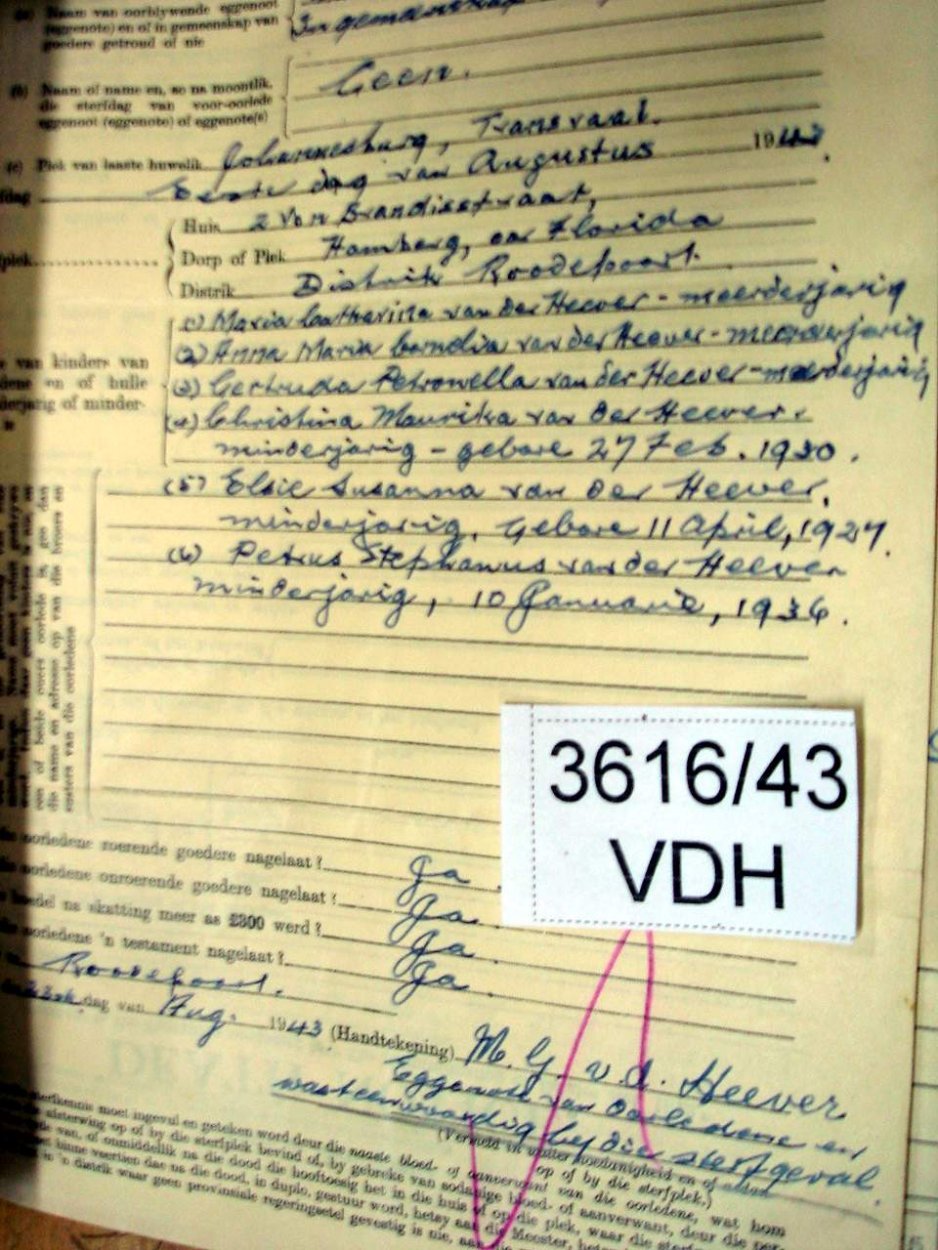 (a) Naam van oorblywende eggenoot
(eggenote) en of in gemeenskap van
goedere getroud of nie
In gemeenskap van
(b) Naam of name en, so na moontlik,
die sterfdag van voor-oorlede
eggenoot (eggenote) of eggenote(s)
Geen.
(c) Plek van laaste huwelik Johannesburg, Transvaal.
Eerste dag van Augustus 1943.
Huis 2 Von Brandisstraat,
Dorp of Plek Hamberg, oor Florida
Distrik Distrik Roodepoort.
(1) Maria Catherina van der Heever - meerderjarig
(2) Anna Maria Cornelia van der Heever - meerderjarig
(3) Gertruda Petronella van der Heever - meerderjarig
(4) Christina Maurika van der Heever.
minderjarig - gebore 27 Feb. 1930.
(5) Elsie Susanna van der Heever,
minderjarig, Gebore 11 April, 1927.
(6) Petrus Stephanus van der Heever
minderjarig, 10 Januarie, 1936.
van kinders van
en of hulle
of minder-
een of beide ouers oorlede is, gee dan
die name en adresse op van die broers en
susters van die oorledene
3616/43
VDH
oorledene roerende goedere nagelaat? Ja.
oorledene onroerende goedere nagelaat? Ja.
boedel na skatting meer as £300 werd? Ja
oorledene 'n testament nagelaat? Ja.
Roodepoort.
dag van Aug. 1943 (Handtekening) M. G. v. d. Heever
Eggenote van Oorledene en
was teenwoordig by die sterfgeval.
(Vermeld in watter hoedanigheid en of
op of by die sterfplek.)
sterfkennis moet ingevul en geteken word deur die naaste bloed- of aanverwant van die oorledene, wat hom
op of by die sterfplek bevind of, by gebreke van sodanige bloed- of aanverwant, deur die
van, of onmiddellik na die dood die hooftoesig het in die huis of op die plek, waar die
binne veertien dae na die dood, in duplo, gestuur word, hetsy aan die Meester,
in 'n distrik waar geen provinsiale regeringsetel gevestig is nie, aan